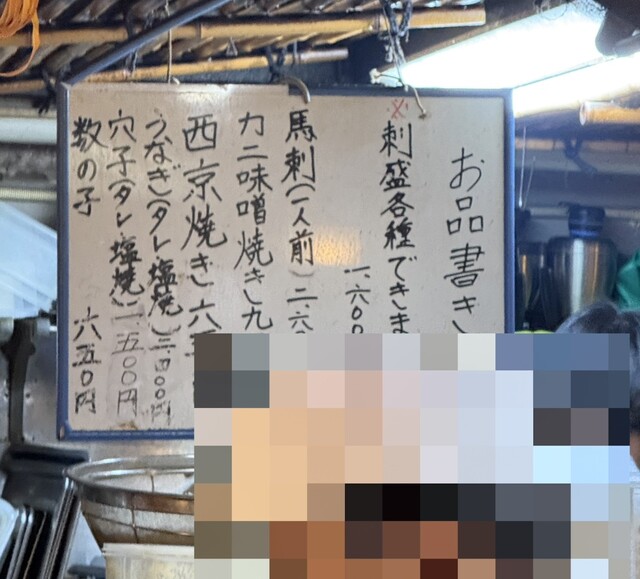 お品書き
※刺盛各種できま
一、六〇〇
馬刺(一人前)二六
カニ味噌焼き九
西京焼き六
うなぎ(タレ塩焼)三、四〇〇円
穴子(タレ塩焼)一、五〇〇円
数の子 六五〇円